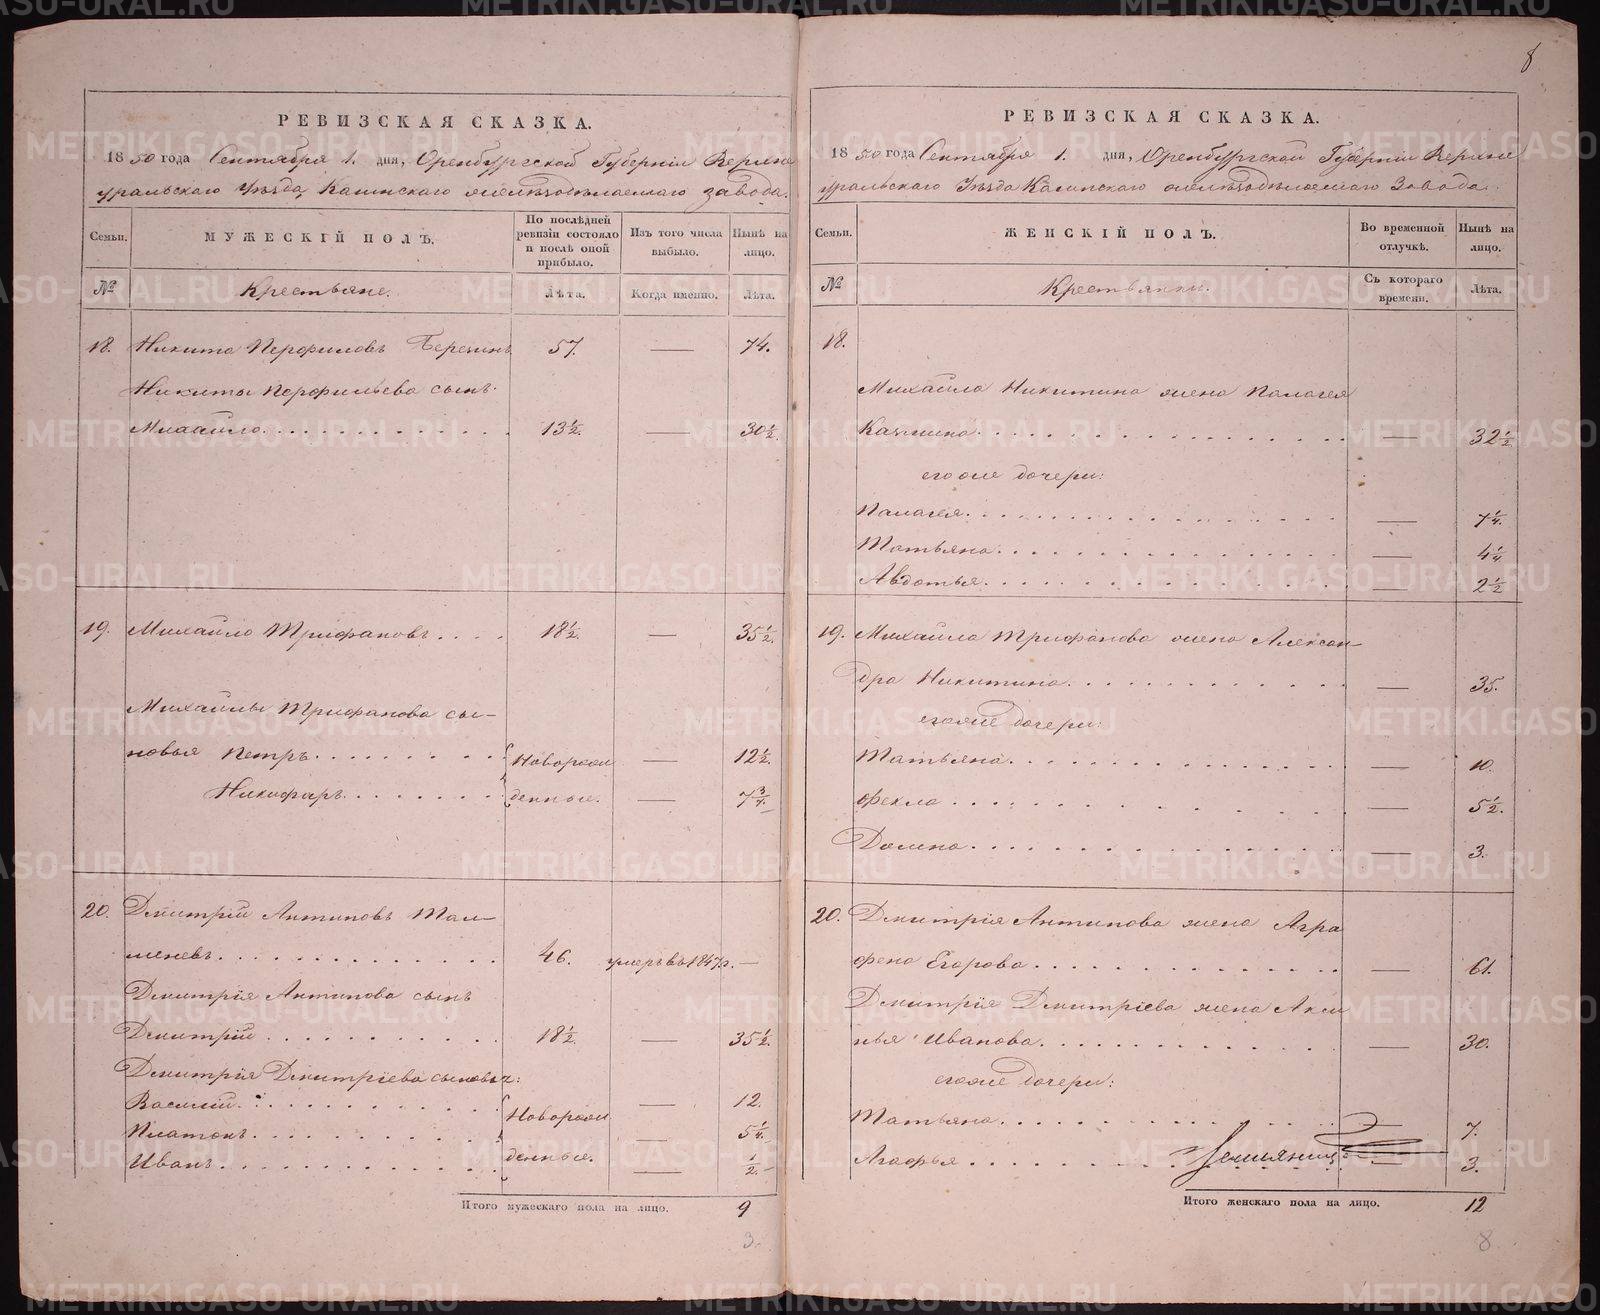 8
РЕВИЗСКАЯ СКАЗКА.
1850 года Сентября 1. дня, Оренбургской Губерніи Верхне
уральскаго Уѣзда, Кагинскаго желѣзодѣлаемаго завода.
Семьи.
МУЖЕСКІЙ ПОЛЪ.
По послѣдней
ревизіи состояло
и послѣ оной
прибыло.
Изъ того числа
выбыло.
Нынѣ на
лицо.
№
Крестьяне.
Лѣта.
Когда именно.
Лѣта.
18. Никита Перфиловъ 57. — 74.
Никиты Перфильева сынъ
Михайло. 13½. — 30½.
19. Михайло Трифановъ. 18½. — 35½.
Михайлы Трифанова сы-
новья Петръ. Новорож — 12½.
Никифаръ. денные. — 7¾
20. Дмитрій Антиповъ Тал-
меневъ. 46. умеръ въ 1847 г. —
Дмитрія Антипова сынъ
Дмитрій. 18½. — 35½.
Дмитрія Дмитріева сыновья:
Василій. Новорож — 12.
Платонъ. — 5¼.
Иванъ. денные. — ½
Итого мужескаго пола на лицо. 9
3.
РЕВИЗСКАЯ СКАЗКА.
1850 года Сентября 1. дня, Оренбургской Губерніи Верхне
уральскаго Уѣзда Кагинскаго желѣзодѣлаемаго Завода.
Семьи.
ЖЕНСКІЙ ПОЛЪ.
Во временной
отлучкѣ.
Нынѣ на
лицо.
№
Крестьянки.
Съ котораго
времени.
Лѣта.
18.
Михайла Никитина жена Палагея
Казмина. — 32½
его же дочери:
Палагея. — 7¼.
Татьяна. — 4¼
Авдотья. — 2½
19. Михайла Трифанова жена Алексан-
дра Никитина. — 35.
его же дочери:
Татьяна. — 10.
Фекла — 5½.
Домна. — 3.
20. Дмитрія Антипова жена Агра
фена Егорова. — 61.
Дмитрія Дмитріева жена Акси
нья Иванова. — 30.
его же дочери:
Татьяна. — 7.
Агафья. — 3.
Итого женскаго пола на лицо. 12
8
METRIKI.GASO-URAL.RU